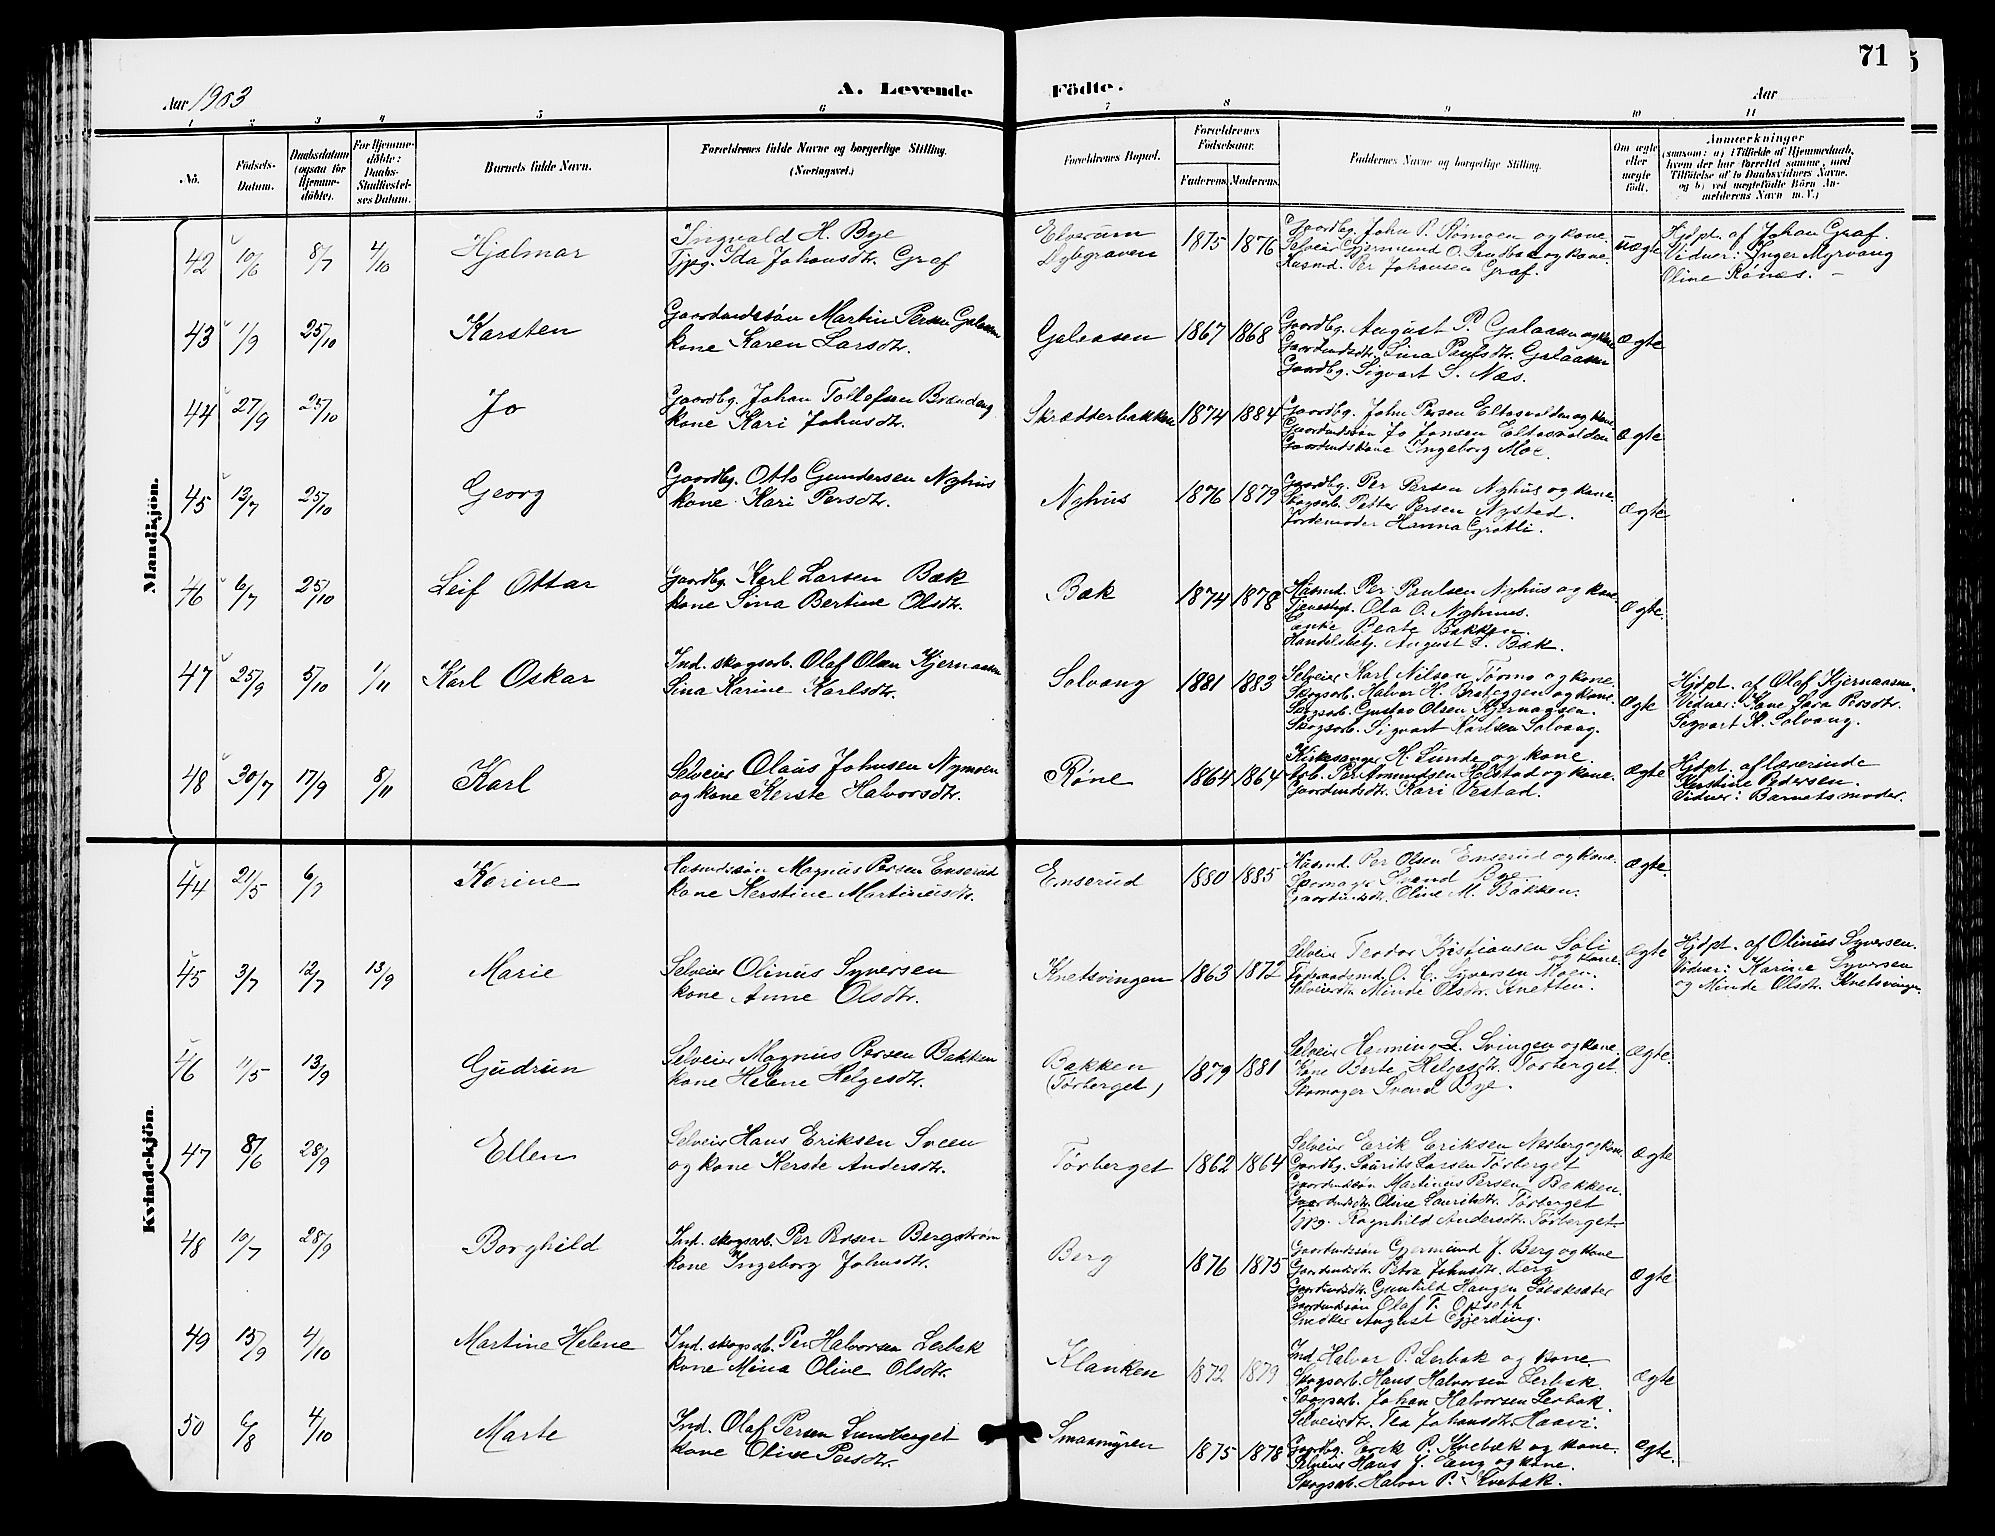 71
Aar 1903
A. Levende Födte.
Aar
1 2 3 4 5 6 7 8 9 10 11
No.
Födsels-
Datum.
Daabsdatum
(ogsaa for
Hjemme-
döbte).
For Hjemme-
döbte:
Daabs-
Stadfæstel-
ses Datum.
Barnets fulde Navn.
Forældrenes fulde Navne og borgerlige Stilling.
(Næringsvei.)
Forældrenes Bopæl.
Forældrenes
Födselsaar.
Faderens. Moderens.
Faddernes Navne og borgerlige Stilling.
Om ægte
eller
uægte
født.
Anmærkninger
(saasom: a) i Tilfælde af Hjemmedaab,
hvem der har forrettet samme, med
Tilföielse af to Daabsvidners Navne,
og b) ved uægtefödte Börn An-
melderens Navn m. V.)
Mandkjön.
42 10/6 8/7 4/10 Hjalmar
Ingvald H. Bye
Tjpg. Ida Johansdtr. Graf
Elverum
Dybgraven
1875 1876
Gaardbg. John P. Rømoen og kone.
Selveier Gjermund O. Sandbæk og kone.
Husmd. Per Johansen Graf.
uægte
Hjdpt. af Johan Graf.
Vidner: Inger Myrvang
Oline Rønes.
43 1/9 25/10 Karsten
Gaardmdssøn Martin Persen Galaasen
kone Karen Larsdtr.
Galaasen 1867 1868
Gaardbg. August P. Galaasen og kone
Gaardmdsdtr. Lina Paulsdtr. Galaasen
Gaardbg. Sigvart S. Næs.
Ægte
44 27/9 25/10 Jo
Gaardbg. Johan Tollefsen Brændeng
kone Kari Johnsdtr.
Skrædderbakken 1874 1884
Gaardbg. John Persen Eltasvolden og kone.
Gaardmdssøn Jo Jonsen Eltasvolden
Gaardmdskone Ingeborg Moe.
Ægte
45 13/7 25/10 Georg
Gaardbg. Otto Gundersen Nyhus
kone Kari Persdtr.
Nyhus 1876 1879
Gaardbg. Per Persen Nyhus og kone.
Skogsarb. Petter Persen Nystad.
Jordemoder Hanna Grøtli.
Ægte
46 6/7 25/10 Leif Ottar
Gaardbg. Karl Larsen Bæk
kone Sina Bertine Olsdtr.
Bæk 1874 1878
Husmd. Per Paulsen Nyhus og kone.
Ola O. Nyhus.
Beate Bakken.
Handelsbetj. August L. Bæk.
Ægte.
47 25/9 5/10 1/11 Karl Oskar
Ind. skogsarb. Olaf Olsen Kjernaasen
Sina Karine Karlsdtr.
Solvang 1881 1883
Selveier Karl Nilsen Tørmo og kone.
Skogsarb. Halvor H. Brateggen og kone.
Skogsarb. Gustav Olsen Kjernaasen.
Skogsarb. Sigvart Karlsen Solvang.
Ægte
Hjdpt. af Olaf Kjernaasen.
Vidner: Kone Sara Persdtr.
Sigvart K. Solvang.
48 30/7 17/9 8/11 Karl
Selveier Olaus Johnsen Nymoen
og kone Kerste Halvorsdtr.
Røne 1864 1864
Kirkesanger H. Lunde og kone.
Arb. Per Amundsen Holstad og kone.
Gaardmdsdtr. Kari Vestad.
Ægte
Hjdpt. af lærerinde
Kerstine Pedersen.
Vidner: Barnets moder.
Kvindekjön.
44 21/5 6/7 Karine
Husmdssøn Magnus Persen Enserud
kone Kerstine Martinusdtr.
Enserud 1880 1885
Husmd. Per Olsen Enserud og kone.
Skomager Svend Bye.
Gaardmdsdtr. Oline M. Bakken.
Ægte.
45 3/7 12/7 13/9 Marie
Selveier Olinus Syversen
kone Anne Olsdtr.
Knetsvingen 1863 1872
Selveier Teodor Kristiansen Søli
og kone.
O. C. Syversen Moen.
Selveierdtr. Minde Olsdtr. Knetten.
Ægte
Hjdpt. af Olinus Syversen.
Vidner: Karine Syversen
og Minde Olsdtr. Knetsvingen.
46 11/5 13/9 Gudrun
Selveier Magnus Persen Bakken
kone Helene Helgesdtr.
Bakken
(Tørberget)
1879 1881
Selveier Henning L. Svingen og kone
Kone Berte Helgesdtr. Tørberget
Skomager Svend Bye.
Ægte.
47 8/6 28/9 Ellen
Selveier Hans Eriksen Sveen
og kone Kerste Andersdtr.
Tørberget 1862 1864
Selveier Erik Eriksen Nesberg og kone.
Gaardbg. Laurits Larsen Tørberget
Gaardmdssøn Martinus Persen Bakken.
Gaardmdsdtr. Oline Lauritsdtr. Tørberget
Tjpg. Ragnhild Andersdtr. Tørberget.
Ægte
48 10/7 28/9 Borghild
Ind. skogsarb. Per Persen Bergstrøm
kone Ingeborg Johnsdtr.
Berg 1876 1875
Gaardmdssøn Gjermund J. Berg og kone
Gaardmdsdtr. Petra Johnsdtr. Berg
Gaardmdsdtr. Gunhild Haugen
Gaardmdssøn Olaf T. Opseth
Snedker August Gjerding.
Ægte
49 13/9 4/10 Martine Helene
Ind. skogsarb. Per Halvorsen Lerbak
kone Mina Olive Olsdtr.
Klanken 1872 1879
Ind. Halvor P. Lerbak og kone.
Skogsarb. Hans Halvorsen Lerbak.
Skogsarb. Johan Halvorsen Lerbak.
Selveierdtr. Tea Johansdtr. Haavi.
Ægte
50 6/8 4/10 Marte
Ind. Olaf Persen Lunberget
kone Olive Persdtr.
Smaamyren 1875 1878
Gaardbg. Erik P. Kvebæk og kone.
Selveier Hans J. Eng og kone.
Skogsarb. Halvor P. Kvebæk.
Ægte.